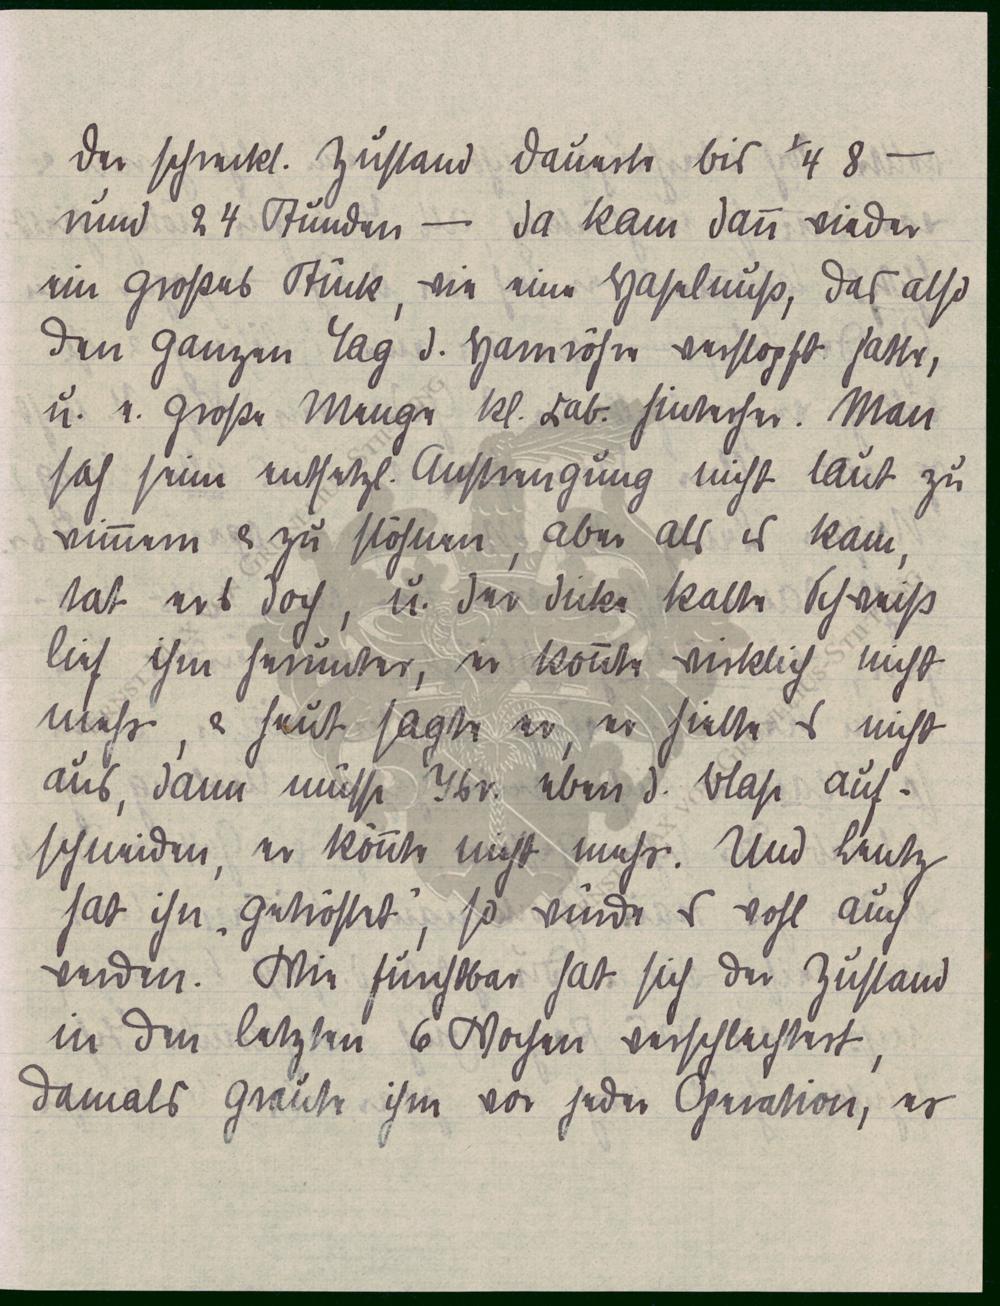 Der schreckl. Zustand dauerte bis ¼ 8 —
rund 24 Stunden — da kam dan̄ wieder
ein großes Stück, wie eine Haselnuß, das also
den ganzen Tag d. Harnröhre verstopft hatte,
u. e. große Menge kl. hinterher. Man
sah seine entsetzl. Anstrengung nicht laut zu
wim̄ern & zu stöhnen, aber als es kam,
tat ers doch, u. der dicke kalte Schweiß
lief ihm herunter, er kon̄te wirklich nicht
mehr, & heut sagte er, er hielte es nicht
aus, dann müsse eben d. Blase auf-
schneiden, er kön̄te nicht mehr. Und Lentz
hat ihn „getröstet", so würde es wohl auch
werden. Wie furchtbar hat sich der Zustand
in den letzten 6 Wochen verschlechtert,
damals graute ihm vor jeder Operation, er